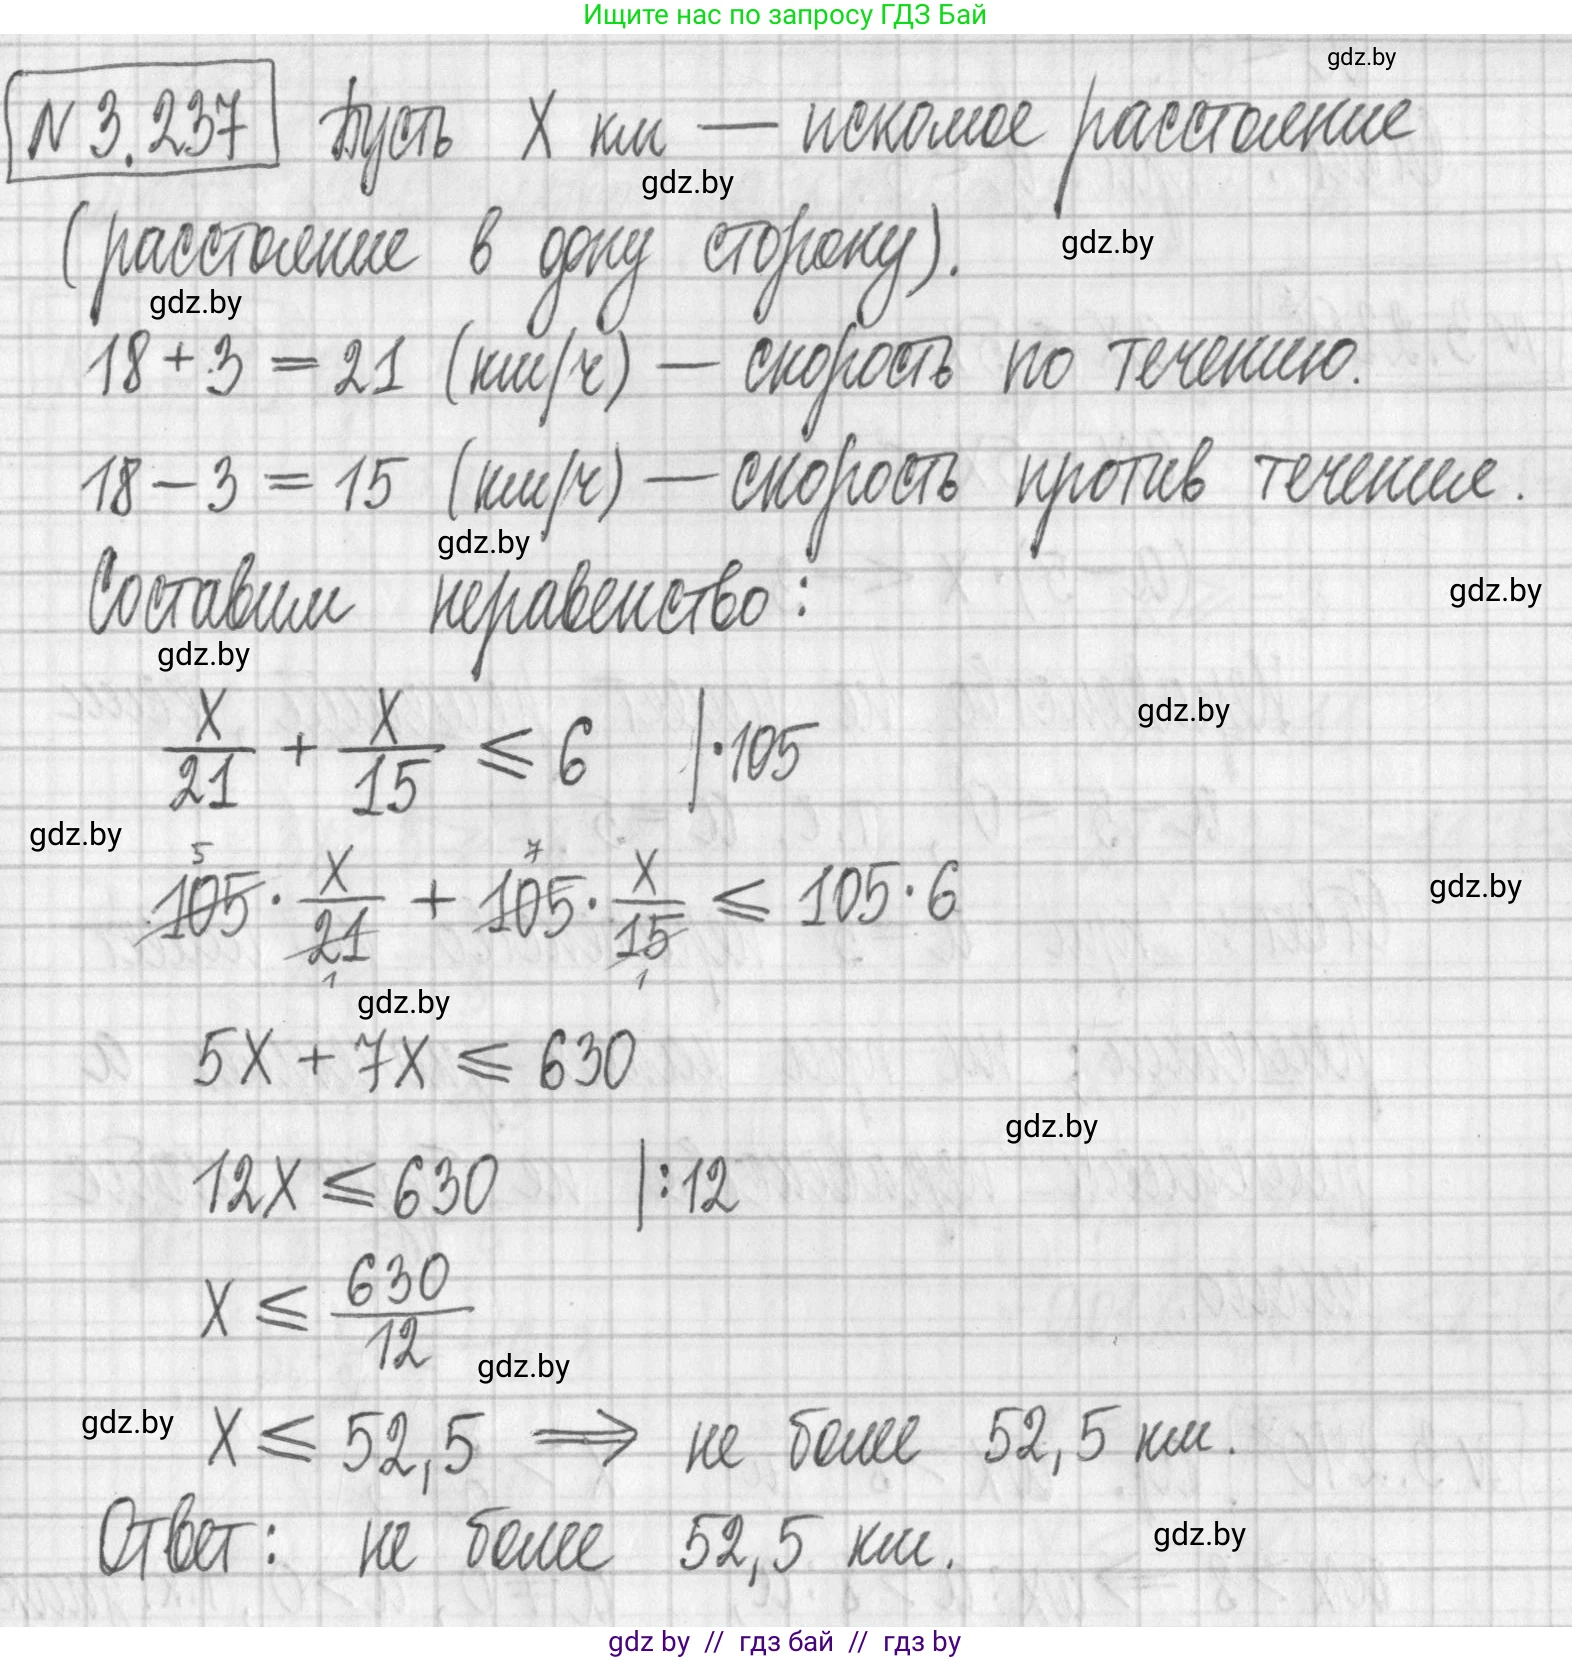 Ищите нас по запросу ГДЗ Бай
gdz.by
№ 3.237 Пусть X км — искомое расстояние
gdz.by
(расстояние в одну сторону).
gdz.by
gdz.by
18 + 3 = 21 (км/ч) — скорость по течению.
18 – 3 = 15 (км/ч) — скорость против течения.
gdz.by
Составим неравенство:
gdz.by
gdz.by
X/21 + X/15 ⩽ 6 |·105
gdz.by
gdz.by
5 7
105 · X/21 + 105 · X/15 ⩽ 105 · 6
gdz.by
1 1
gdz.by
5X + 7X ⩽ 630
gdz.by
12X ⩽ 630 |:12
X ⩽ 630/12
gdz.by
gdz.by
X ⩽ 52,5 ⟹ не более 52,5 км.
Ответ: не более 52,5 км.
gdz.by
gdz by // гдз бай // гдз by